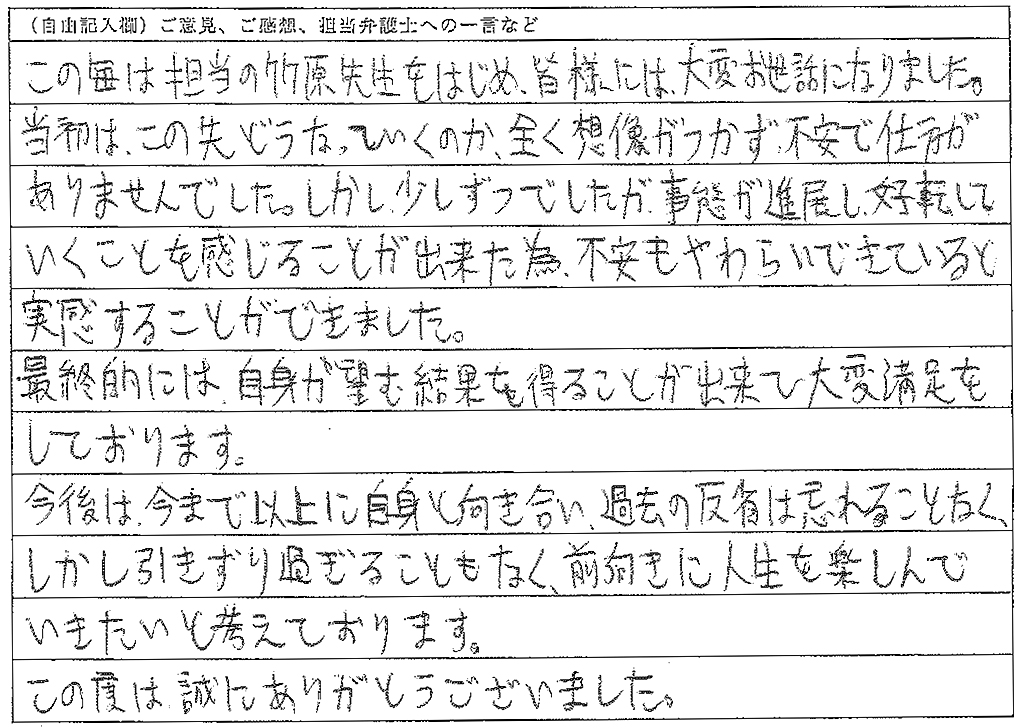 （自由記入欄）ご意見、ご感想、担当弁護士への一言など
この毎は担当の竹原先生をはじめ、皆様には、大変お世話になりました。
当初は、この先どうなっていくのか、全く想像がつかず、不安で仕方が
ありませんでした。しかし、少しずつでしたが、事態が進展し、好転して
いくことを感じることが出来た為、不安もやわらいできていると
実感することができました。
最終的には、自身が望む結果を得ることが出来て大変満足を
しております。
今後は、今まで以上に自身と向き合い、過去の反省は忘れることなく、
しかし引きずり過ぎることもなく、前向きに人生を楽しんで
いきたいと考えております。
この度は、誠にありがとうございました。